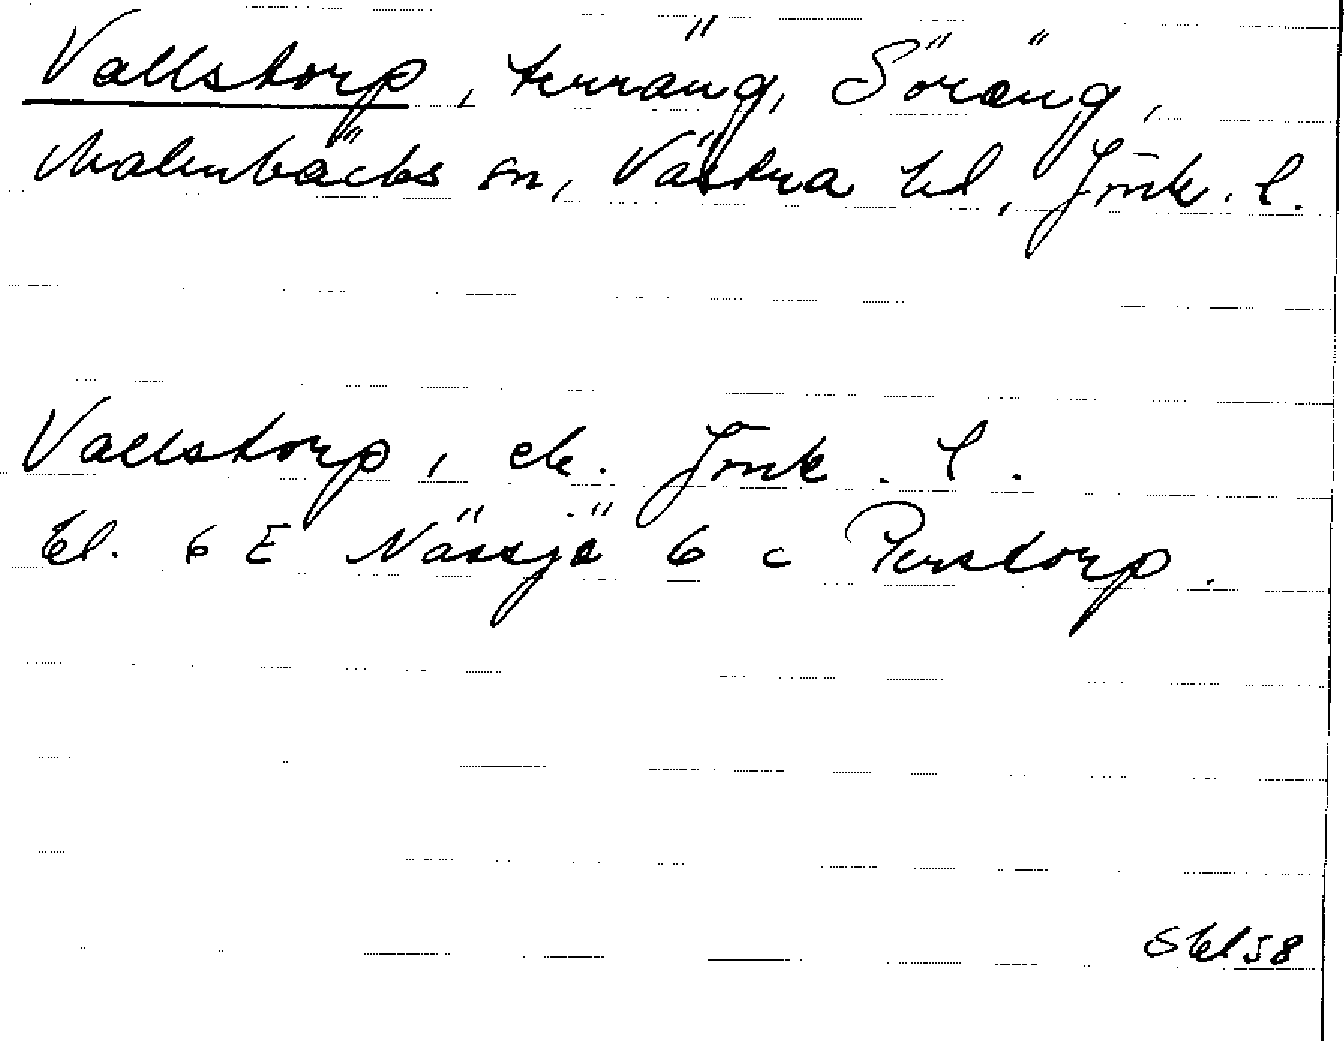 Vallstorp, terräng, Söräng,
Malmbäcks sn, Västra hd, Jönk. l.
Vallstorp, ek. Jönk. l.
bl. 6 E Nässjö 6 c Perstorp.